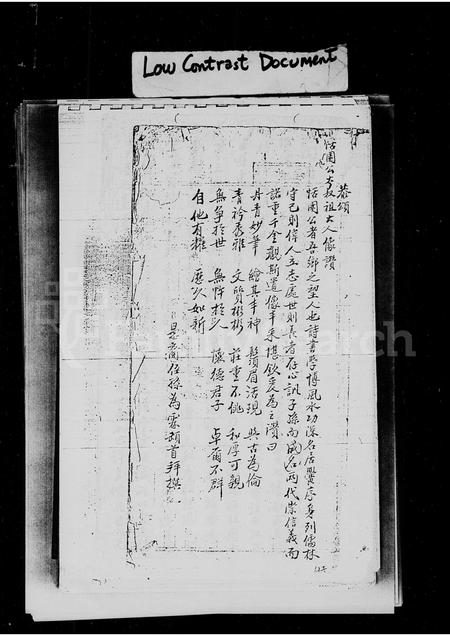 Low Contrast Document
恭頌
恬園公大叔祖大人像讚
恬園公者吾鄉之望人也詩書學博風水功深名居黌序身列儒林
守己則偉人立志處世則長者存心訓子孫而成名兩代崇信義而
諾重千金觀斯遺像丰采堪欽爰為之讚曰
丹青妙筆 繪其丰神 鬚眉活現 與古為倫
青衿秀雅 文質彬彬 莊重不佻 和厚可親
無爭於世 無忤於人 隱德君子 卓爾不群
自他有耀 歷久如新
姪孫為霖頓首拜撰
FamilySearch